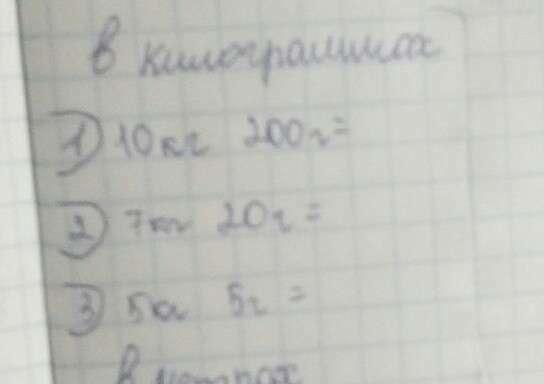 в килограммах
1) 10кг 200г=
2) 7кг 20г=
3) 5кг 5г=
в метрах